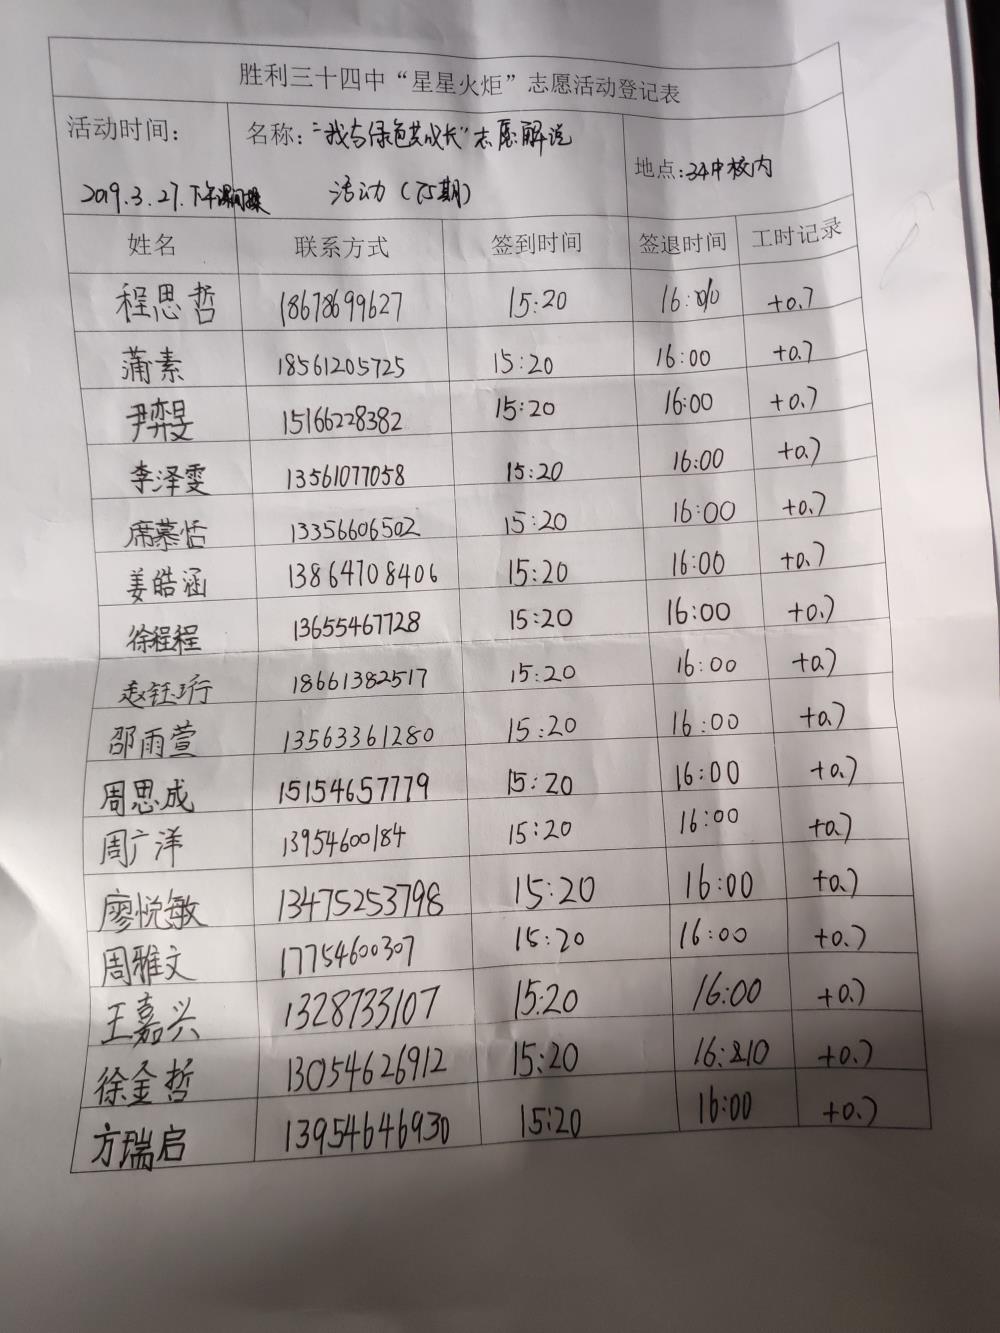 胜利三十四中“星星火炬”志愿活动登记表
活动时间： 名称：“我与绿色共成长”志愿解说 地点：34中校内
2019.3.27.下午课间操 活动（75期）
姓名 联系方式 签到时间 签退时间 工时记录
程思哲 18678699627 15:20 16:00 +0.7
蒲素 18561205725 15:20 16:00 +0.7
尹弈旻 15166228382 15:20 16:00 +0.7
李泽雯 13561077058 15:20 16:00 +0.7
席慕恬 13356606502 15:20 16:00 +0.7
姜皓涵 13864708406 15:20 16:00 +0.7
徐程程 13655467728 15:20 16:00 +0.7
赵钰珩 18661382517 15:20 16:00 +0.7
邵雨萱 13563361280 15:20 16:00 +0.7
周思成 15154657779 15:20 16:00 +0.7
周广洋 13954600184 15:20 16:00 +0.7
廖悦敏 13475253798 15:20 16:00 +0.7
周雅文 17754600307 15:20 16:00 +0.7
王嘉兴 1328733107 15:20 16:00 +0.7
徐金哲 13054626912 15:20 +0.7
方瑞启 13954646930 15:20 16:00 +0.7